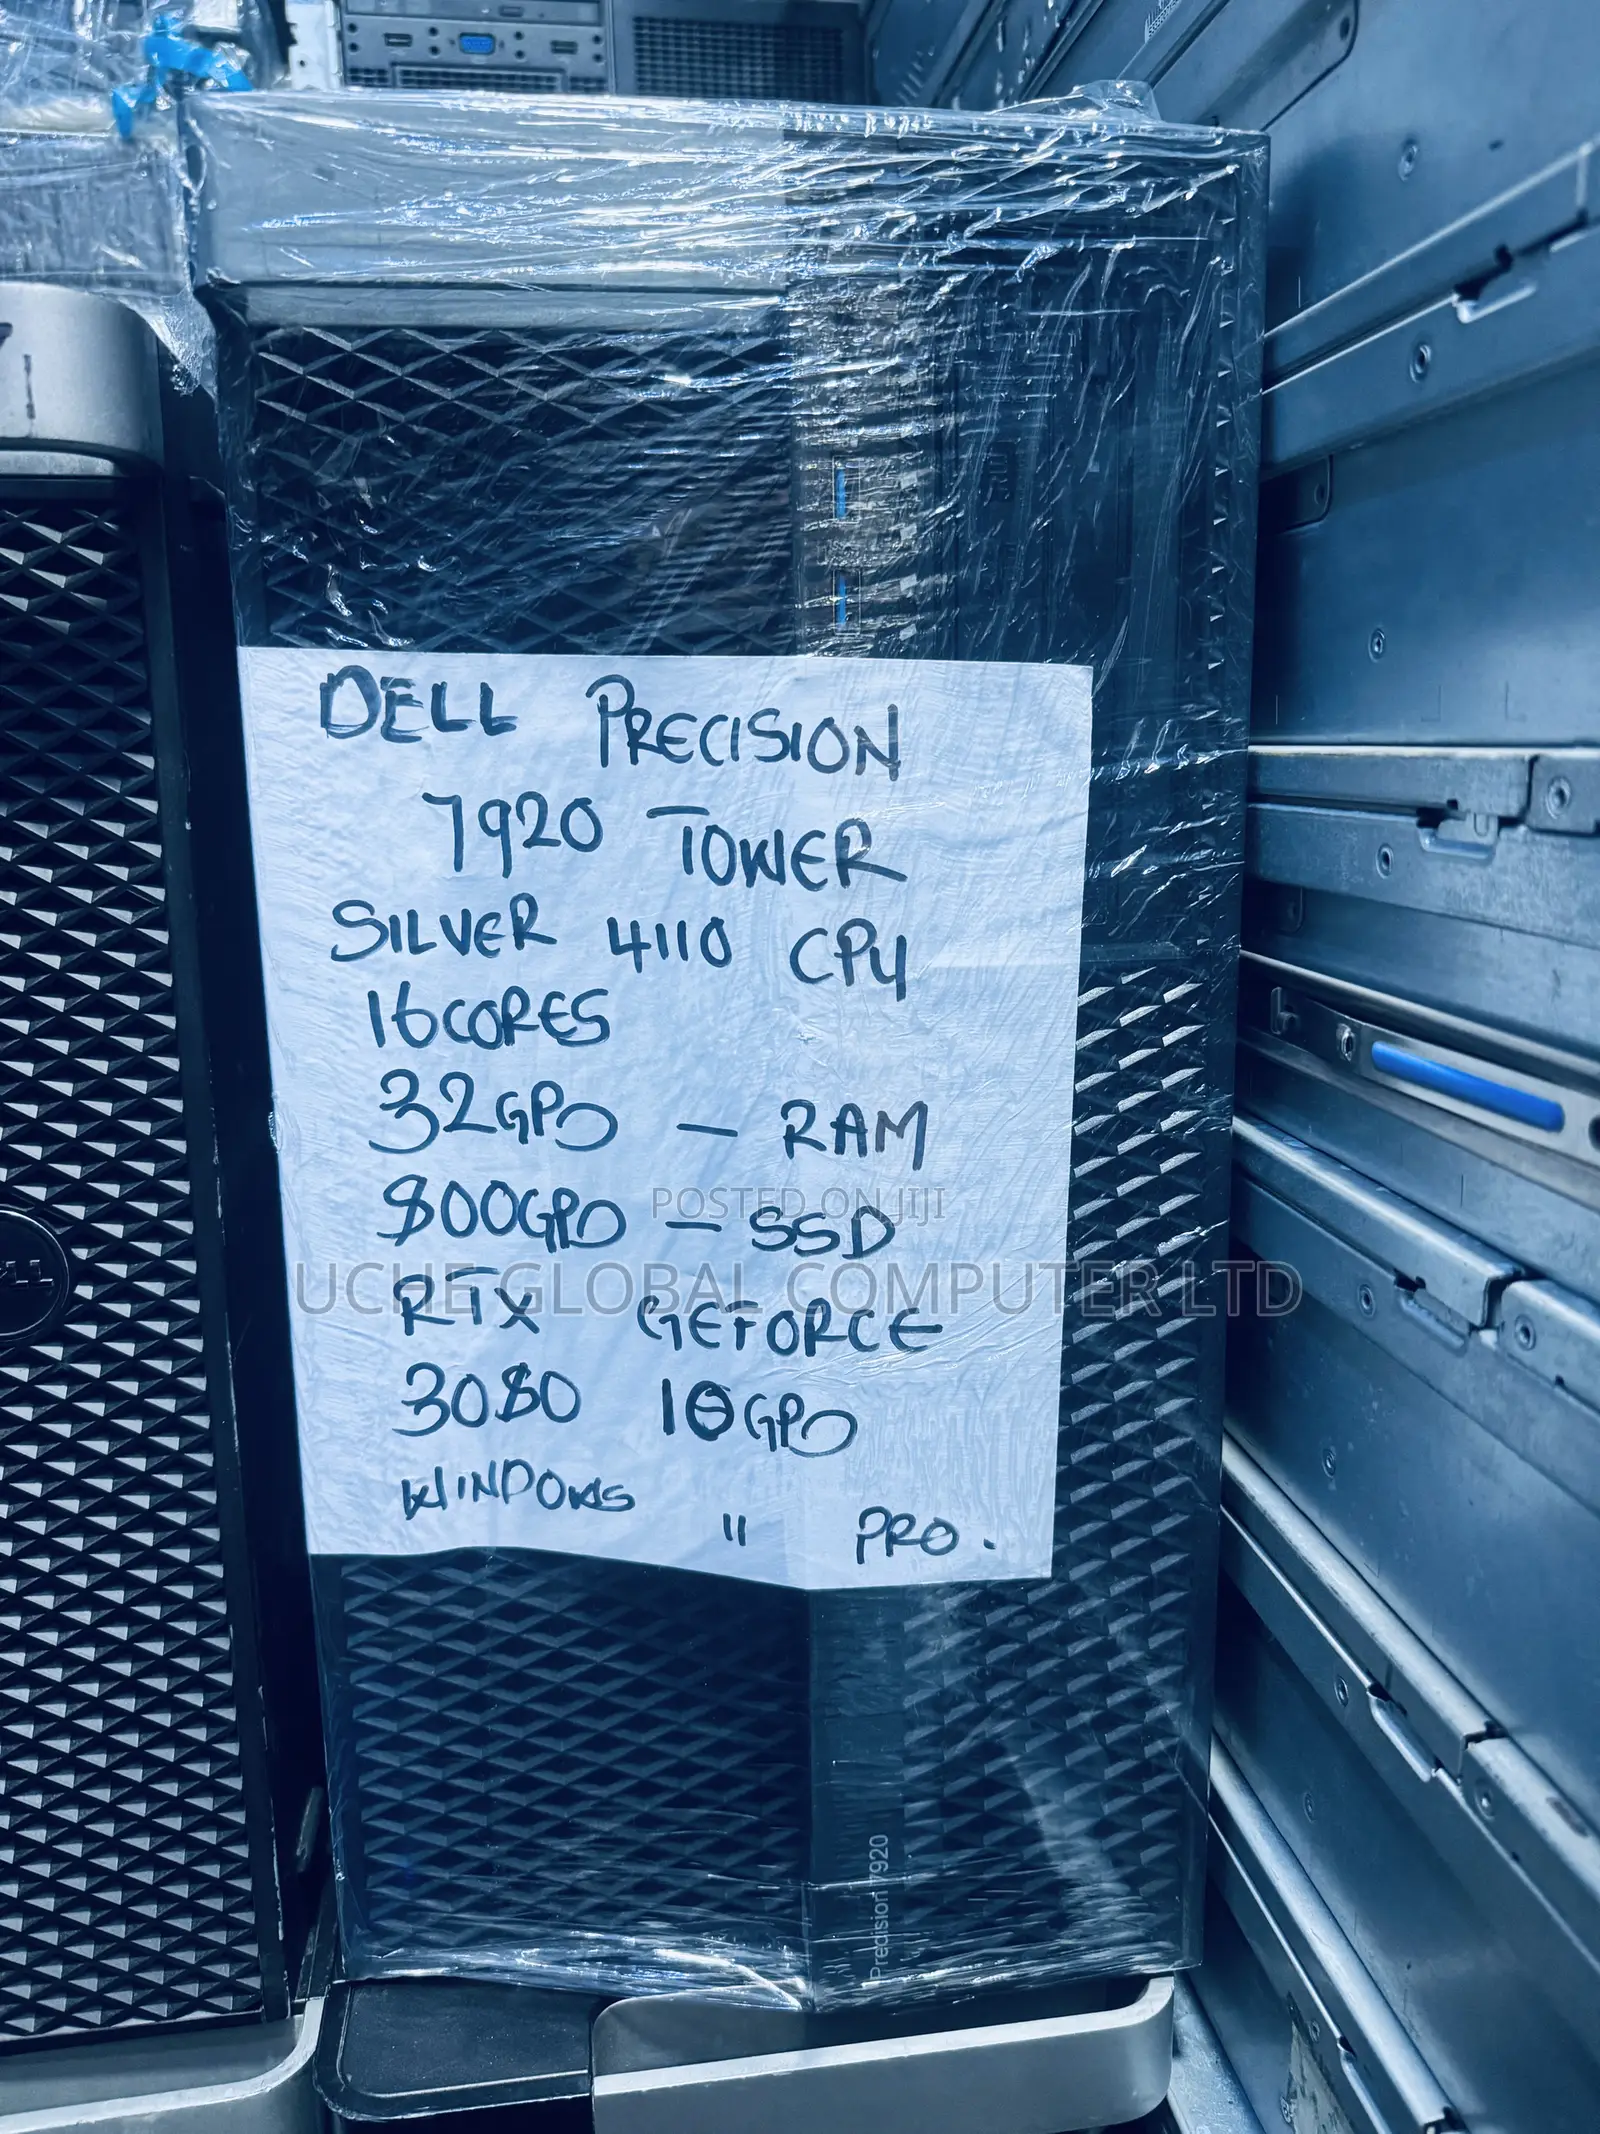 DELL PRECISION
7920 TOWER
SILVER 4110 CPU
16CORES
32GB — RAM
800GB — SSD
POSTED ON JIJI
UCHE GLOBAL COMPUTER LTD
RTX GEFORCE
3080 10GB
WINDOWS 11 PRO.
Precision 7920